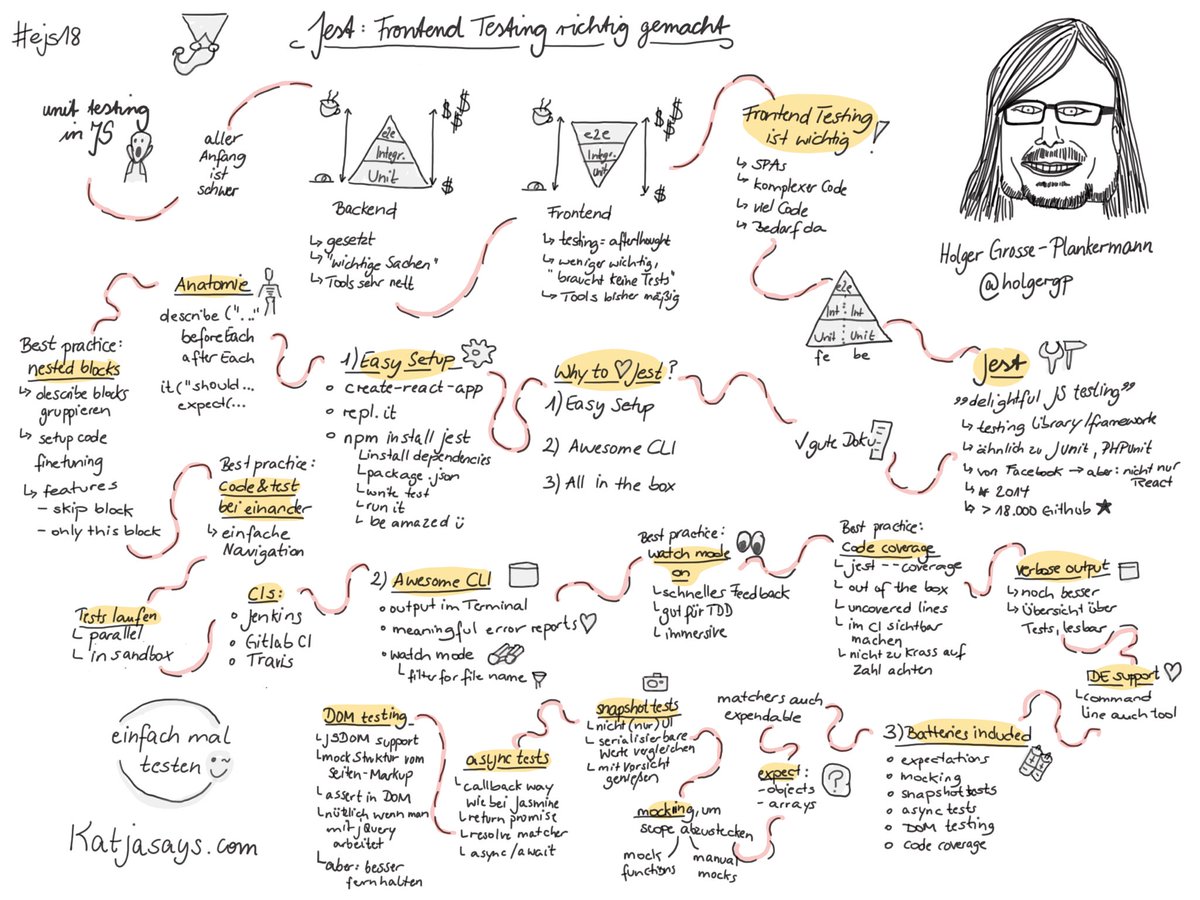 #ejs18
Jest: Frontend Testing richtig gemacht
unit testing
in JS
aller
Anfang
ist
schwer
$
$
$
$
e2e
Integr.
Unit
Backend
↳ gesetzt
↳ "wichtige Sachen"
↳ Tools sehr nett
$
$
$
$
e2e
Integr.
Unit
Frontend
↳ testing = afterthought
↳ weniger wichtig,
"braucht keine Tests"
↳ Tools bisher mäßig
Frontend Testing
ist wichtig
!
↳ SPAs
↳ komplexer Code
↳ viel Code
↳ Bedarf da
Holger Grosse-Plankermann
@holgergp
e2e
Int Int
Unit Unit
fe be
Jest
„delightful JS testing"
↳ testing library/framework
↳ ähnlich zu JUnit, PHPUnit
↳ von Facebook → aber: nicht nur
React
↳ * 2014
↳ > 18.000 Github ★
√ gute Doku
Why to ♡ Jest?
1) Easy Setup
2) Awesome CLI
3) All in the box
1) Easy Setup
o create-react-app
o repl.it
o npm install jest
↳ install dependencies
↳ package.json
↳ write test
↳ run it
↳ be amazed ü
Anatomie
describe ("..."
beforeEach
afterEach
it("should...
expect(...
Best practice:
nested blocks
↳ describe blocks
gruppieren
↳ setup code
finetuning
↳ features
- skip block
- only this block
Best practice:
Code & test
bei einander
↳ einfache
Navigation
Tests laufen
↳ parallel
↳ in sandbox
CIs:
• Jenkins
• Gitlab CI
• Travis
2) Awesome CLI
• output im Terminal
• meaningful error reports ♡
• watch mode
↳ filter for file name
Best practice:
watch mode
on
↳ schnelles Feedback
↳ gut für TDD
↳ immersive
Best practice:
Code coverage
↳ jest --coverage
↳ out of the box
↳ uncovered lines
↳ im CI sichtbar
machen
↳ nicht zu krass auf
Zahl achten
verbose output
↳ noch besser
↳ Übersicht über
Tests, lesbar
IDE support ♡
↳ command
line auch tool
3) Batteries included
o expectations
o mocking
o snapshot tests
o async tests
o DOM testing
o code coverage
matchers auch
expendable
expect:
- objects
- arrays
?
mocking, um
scope abzustecken
mock
functions
manual
mocks
snapshot tests
↳ nicht (nur) UI
↳ serialisierbare
Werte vergleichen
↳ mit Vorsicht
genießen
async tests
↳ callback way
wie bei Jasmine
↳ return promise
↳ resolve matcher
↳ async/await
DOM testing
↳ JSDOM support
↳ mock Struktur vom
Seiten-Markup
↳ assert in DOM
↳ nützlich wenn man
mit jQuery
arbeitet
↳ aber: besser
fernhalten
einfach mal
testen
Katjasays.com